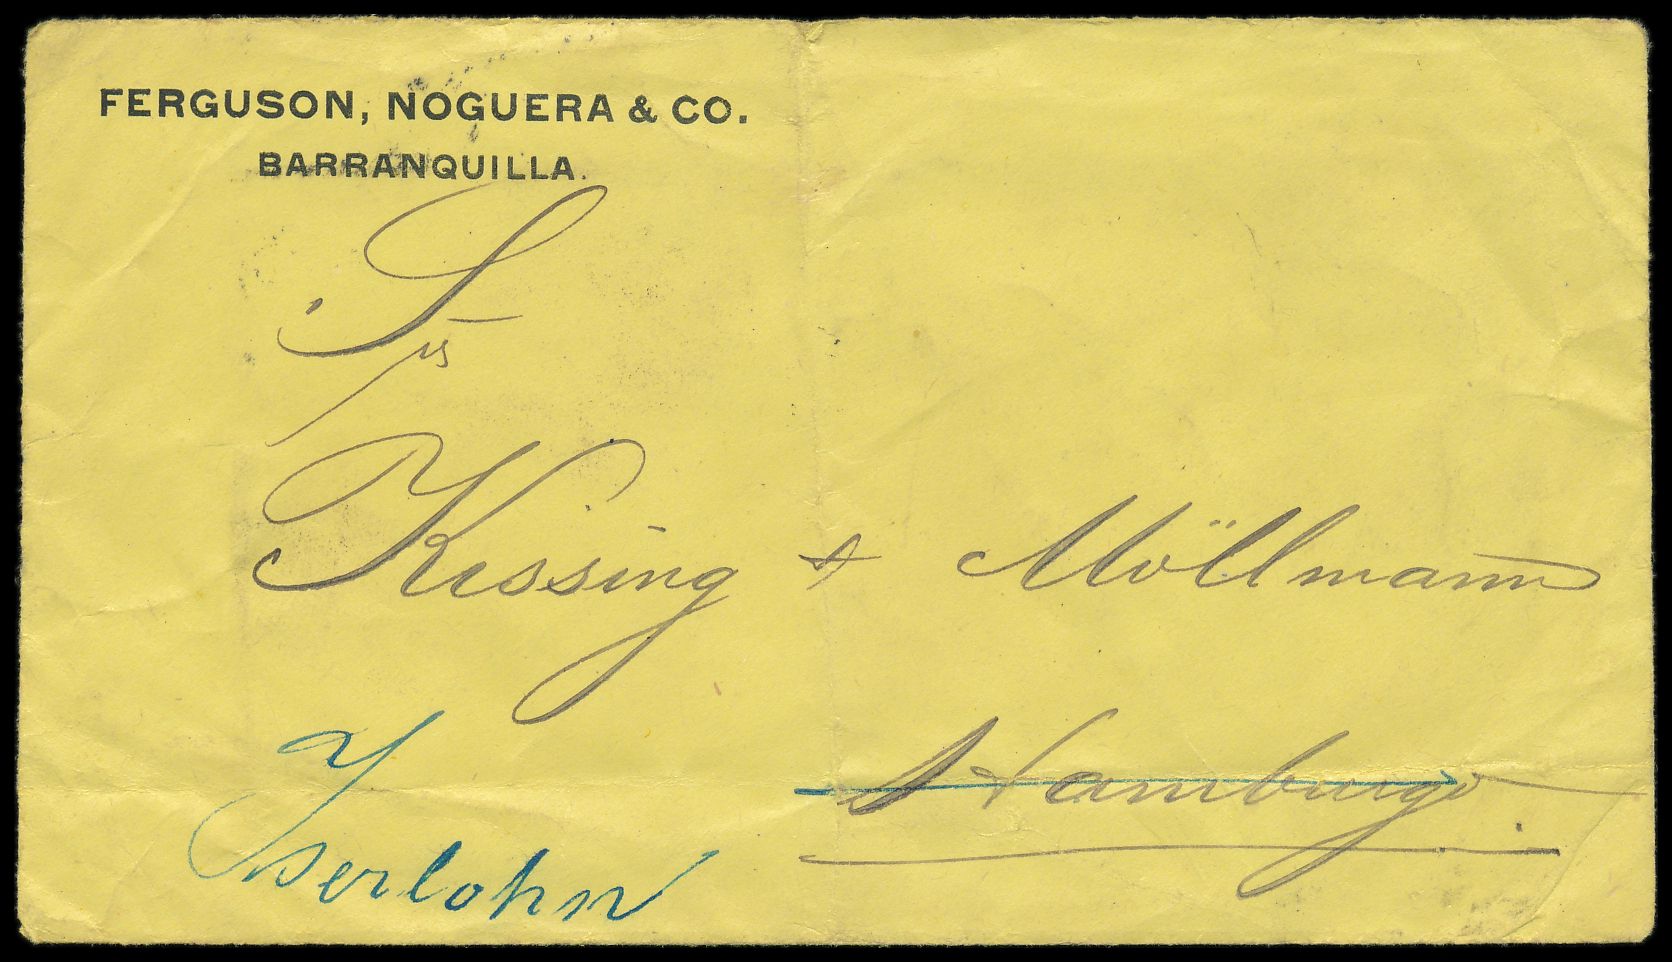 FERGUSON, NOGUERA & CO.
BARRANQUILLA.
Srs
Kissing & Möllmann
Hamburgo
Iserlohn